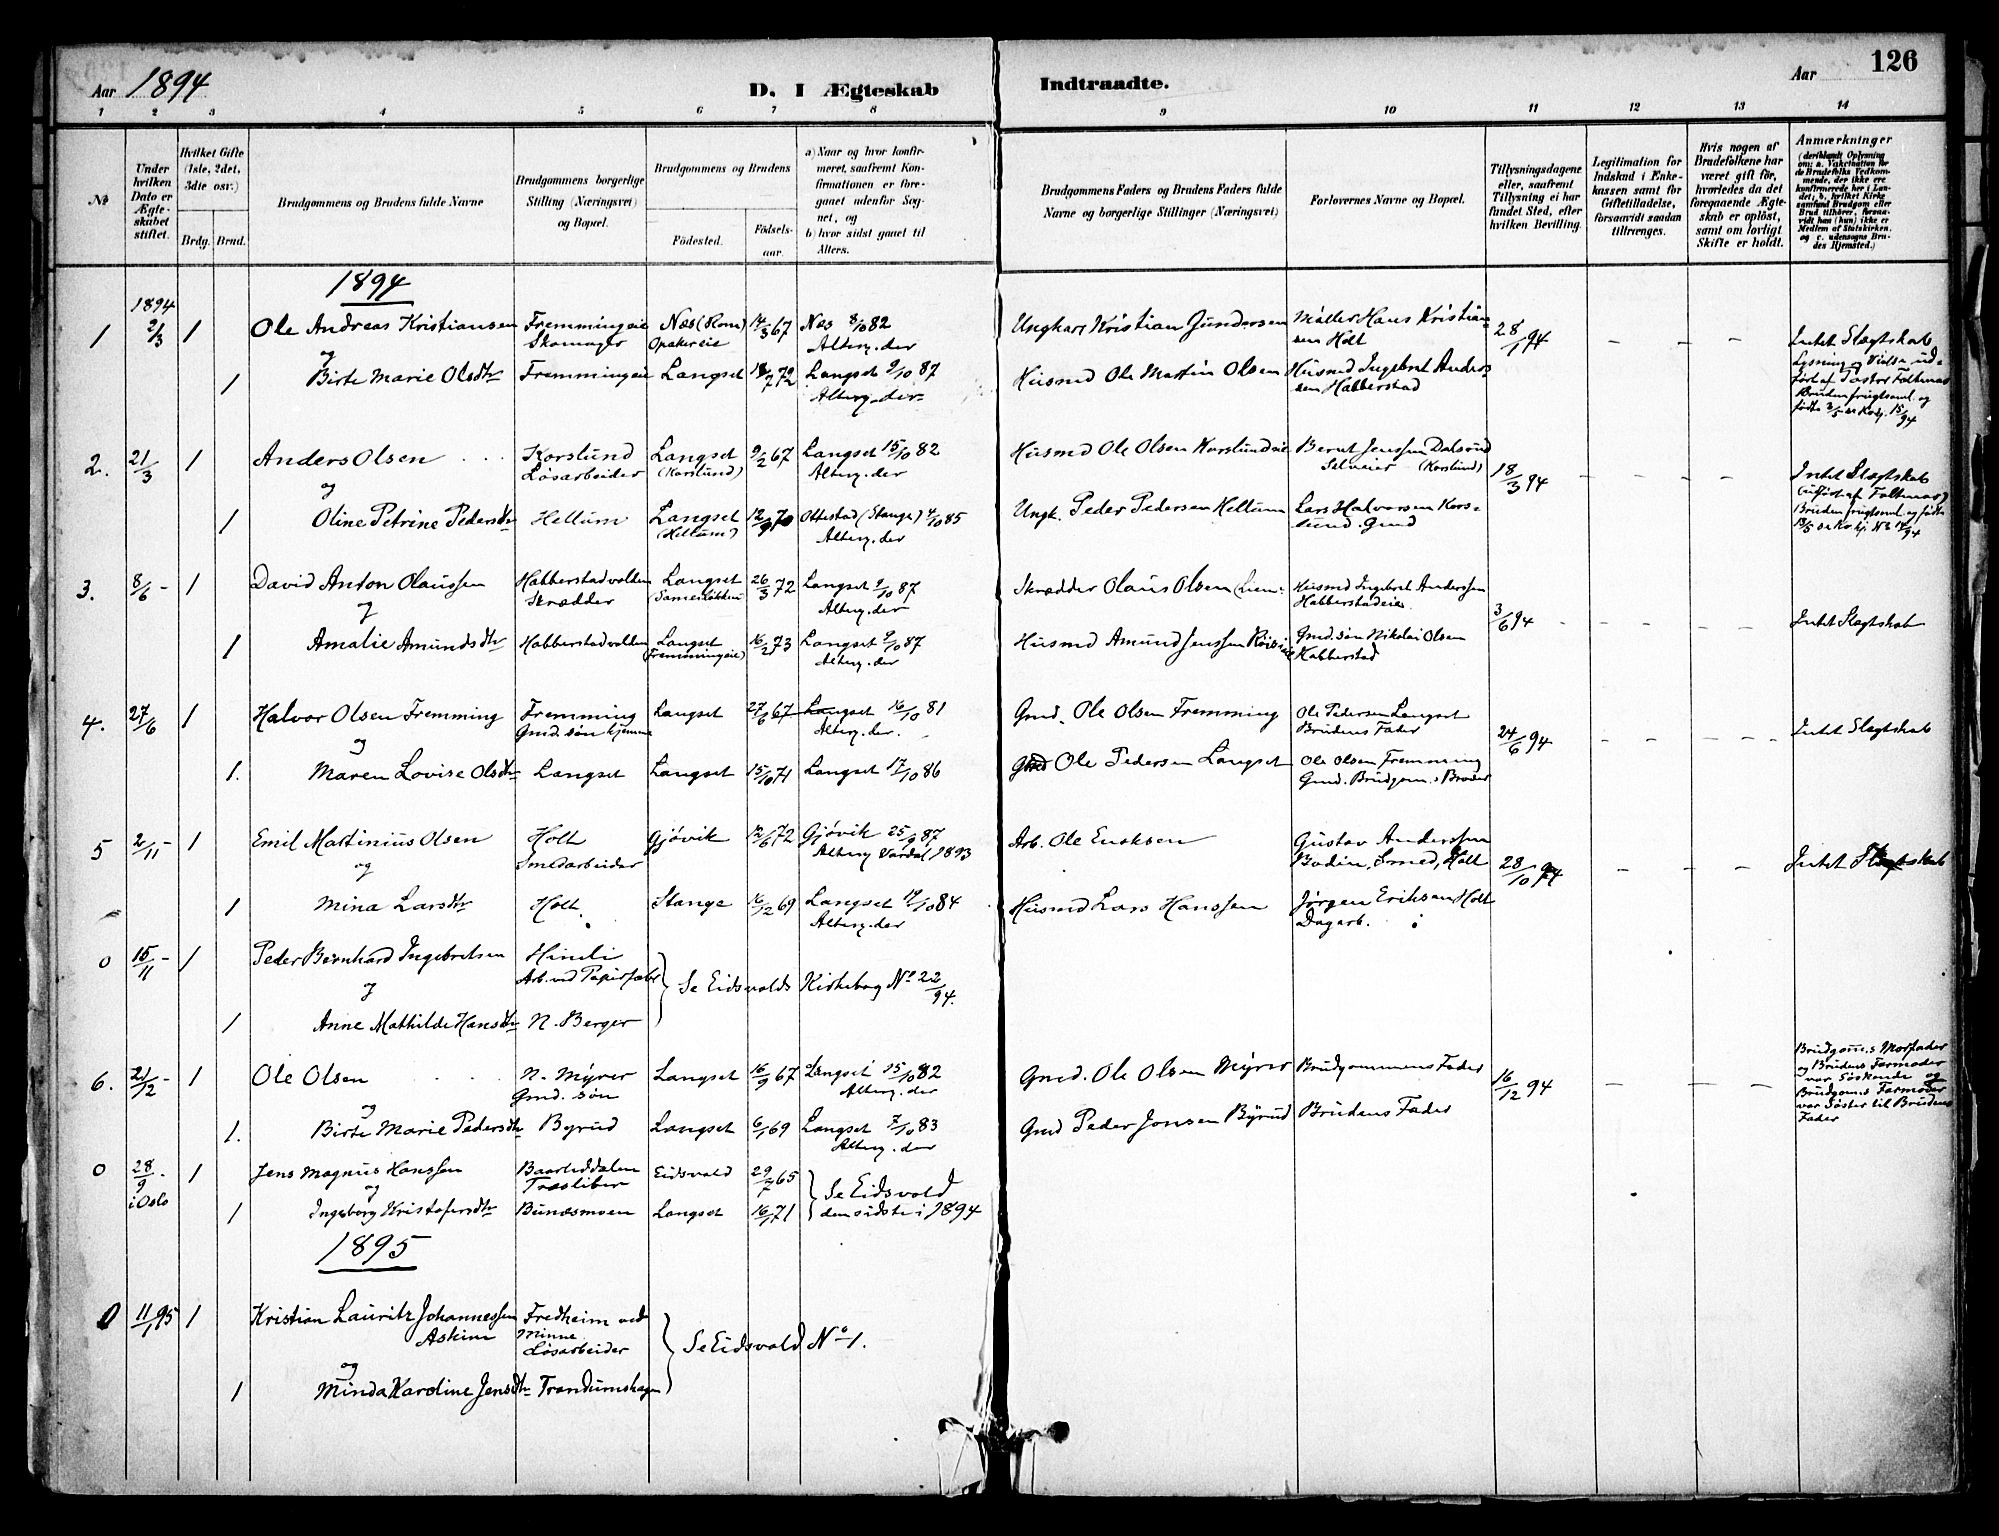 126
Aar 1894
D. I Ægteskab Indtraadte.
Aar
1 2 3 4 5 6 7 8 9 10 11 12 13 14
№
Under hvilken Dato er Ægteskabet stiftet.
Hvilket Gifte (1ste, 2det, 3die osv.)
Brdg. Brud.
Brudgommens og Brudens fulde Navne
Brudgommens borgerlige Stilling (Næringsvei) og Bopæl.
Brudgommens og Brudens
Fødested. Fødselsaar.
a) Naar og hvor konfirmeret, saafremt Konfirmationen er foregaaet udenfor Sognet, og
b) hvor sidst gaaet til Alters.
Brudgommens Faders og Brudens Faders fulde Navne og borgerlige Stillinger (Næringsvei)
Forlovernes Navne og Bopæl.
Tillysningsdagene eller, saafremt Tillysning ei har fundet Sted, efter hvilken Bevilling.
Legitimation for Indskud i Enkekassen samt for Giftetilladelse, forsaavidt saadan tiltrænges.
Hvis nogen af Brudefolkene har været gift før, hvorledes da det foregaaende Ægteskab er opløst, samt om lovligt Skifte er holdt.
Anmærkninger
(deriblandt Oplysning om: a. Vakcination for de Brudefolks Vedkommende, der ikke ere konfirmerede her i Landet; b. hvilket Kirkesamfund Brudgom eller Brud tilhører, forsaavidt han (hun) ikke er Medlem af Statskirken, og c. udensogns Brudes Hjemsted.)
1894
1894
1 2/3 1 Ole Andreas Kristiansen Fremmingeie Skomager Næs (Rom) Opakereie 14/3 67 Næs 8/10 82 Alterg. der Ungkarl Kristian Gundersen Møller Hans Kristiansen Holt 28/1 94 – – – Intet Slægtskab
og
1 Birte Marie Olsdtr Fremmingeie Langset 18/2 72 Langset 9/10 87 Alterg. der Husmd Ole Martin Olsen Husmd Ingebret Anderssen Habberstad
Lysning og Vielse udført af Pastor Faltenas
Bruden frugtsoml. og
fødte 2/5 se Kirkj. 15/94
2. 21/3 1 Anders Olsen Korslund Løsarbeider Langset (Korslund) 9/2 67 Langset 15/10 82 Alterg. der Husmd Ole Olsen Korslundeie Bernt Jenssen Dalsrud Selveier (Korslund) 18/3 94 – – – Intet Slægtskab
og
1 Oline Petrine Pedersdtr Hellum Langset (Hellum) 12/9 70 Ottestad (Stange) 4/10 85 Alterg. der Ungk. Peder Pedersen Hellum Lars Halvorsen Korslund. Gmd
(udført af Faltenas)
Bruden frugtsoml. og fødte
3. 8/6 – 1 David Anton Olaussen Habberstadvolden Skrædder Langset 26/3 72 Langset 9/10 87 Alterg. der Skrædder Olaus Olsen Husmd Ingebret Anderssen Habberstadeie 3/6 94 – – – Intet Slægtskab
og
1 Amalie Amundsdtr Habberstadvolden Langset (Fremmingeie) 16/2 73 Langset 9/10 87 Alterg. der Husmd Amund Jenssen Gmd. søn Nikolai Olsen Habberstad
4. 27/6 1 Halvor Olsen Fremming Fremming Gmd. søn hjemme Langset 27/6 67 Langset 16/10 81 Alterg. der. Gmd. Ole Olsen Fremming Ole Pedersen Langset Brudens Fader 24/6 94 – – – Intet Slægtskab
og
1. Maren Lovise Olsdtr Langset Langset 15/10 71 Langset 17/10 86 Gmd Ole Pedersen Langset Ole Olsen Fremming Gmd. Brudgom.s Broder
5 2/11 – 1 Emil Martinius Olsen Holt Smedarbeider Gjøvik 12/6 72 Gjøvik 25/9 87 Alterg Vardal 1893 Arb. Ole Eriksen Gustav Anderssen Bodin, Smed, Holt 28/10 94 – – – Intet Slægtskab
og
1 Mina Larsdtr Holt. Stange 16/12 69 Langset 19/10 84 Alterg. der Husmd Lars Hanssen Jørgen Eriksen, Holt Dagarb.
0 15/11 – 1 Peder Bernhard Ingebretsen Himli Arb. ved Papirfabr
og
Se Eidsvolds Kirkebog No 22/94.
1 Anne Mathilde Hansdtr N. Berger
6. 21/12 – 1 Ole Olsen N. Myrer Gmd. søn Langset 16/9 67 Langset 15/10 82 Alterg. der Gmd. Ole Olsen Myrer Brudgommens Fader 16/12 94 – – –
og
1. Birte Marie Pedersdtr Byrud Langset 6/1 69 Langset 7/10 83 Alterg. der Gmd Peder Jonsen Byrud Brudens Fader
Brudgom.s Morfader
og Brudens Farmoder
var Søskende og
Brudgoms Farmoder
var Søster til Brudens
Fader
0 28/9. i Oslo 1 Jens Magnus Hanssen Træsliber Eidsvold 29/7 65
og
Se Eidsvold den sidste i 1894
1 Ingeborg Kristofersdtr Bunæsmoen Langset 16/1 71
1895
0 11/1 95 1 Kristian Lauritz Johannessen Askim Fredheim ved Minne Løsarbeider
og
Se Eidsvold No 1.
1 Minda Karoline Jensdtr Trandumshagen